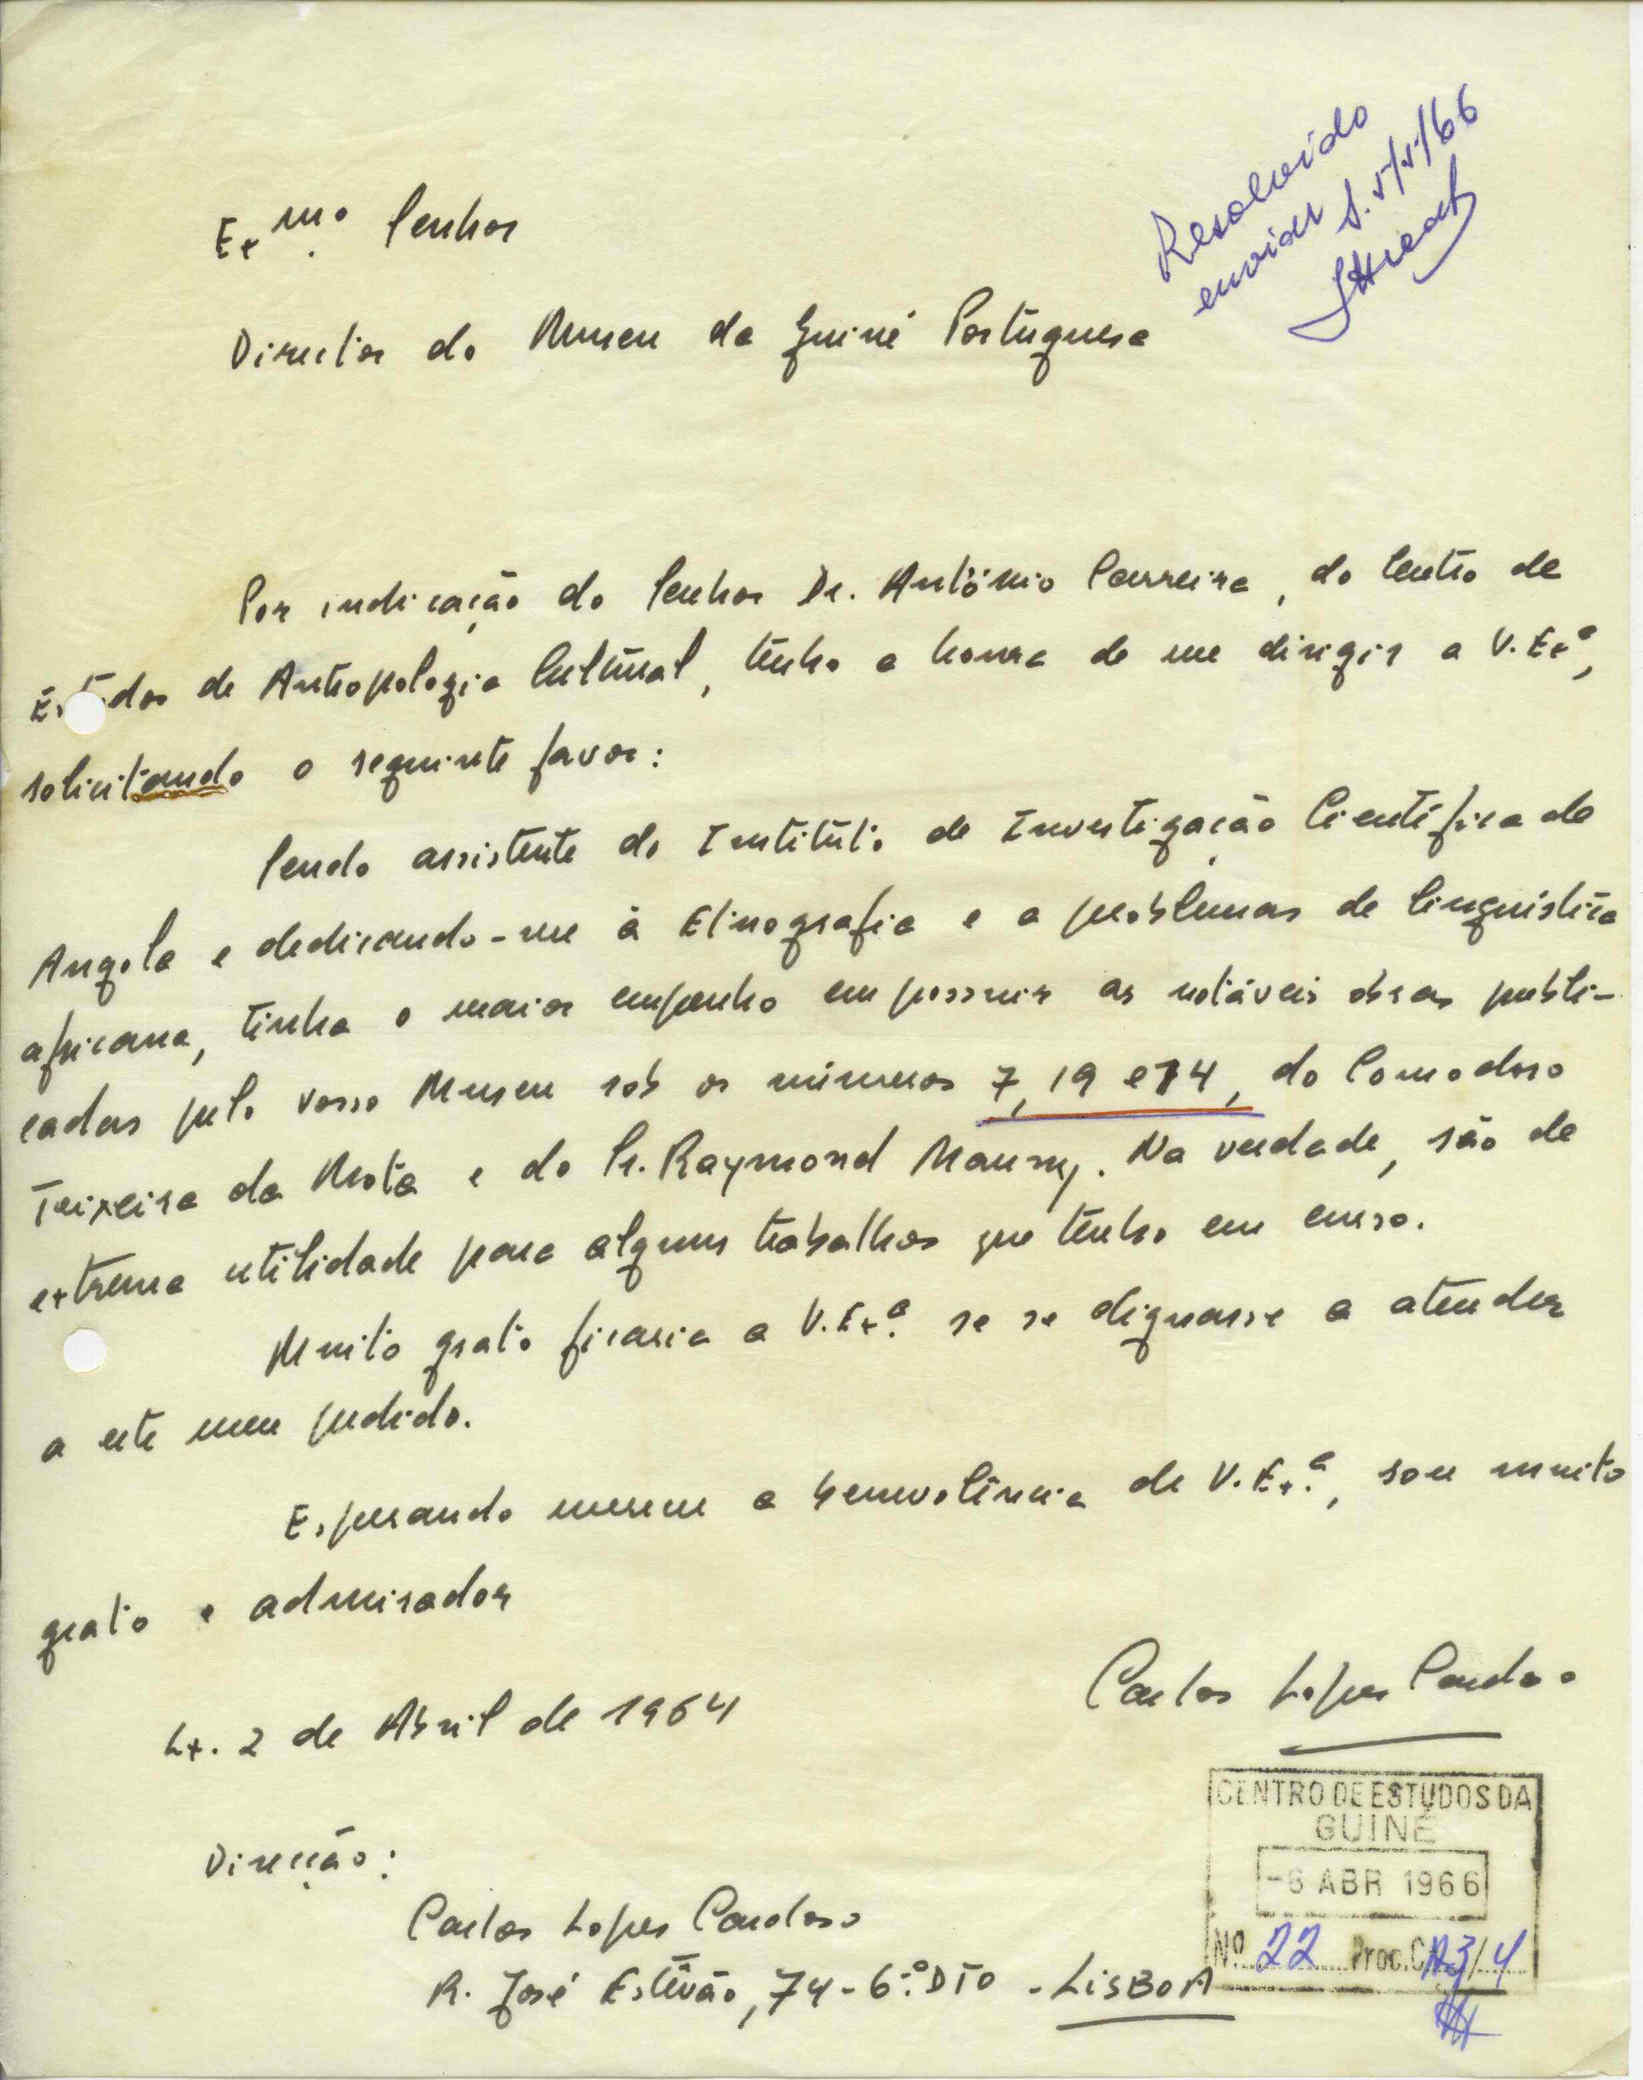 Resolvido
enviar S. 5/5/66
Ex.mo Senhor
Director do Museu da Guiné Portuguesa
Por indicação do Senhor Dr. António Carreira, do Centro de
Estudos de Antropologia Cultural, tenho a honra de me dirigir a V. Ex.ª,
solicitando o seguinte favor:
Sendo assistente do Instituto de Investigação Científica de
Angola e dedicando-me à Etnografia e a problemas de linguística
africana, tinha o maior empenho em possuir as notáveis obras publi-
cadas pelo vosso Museu sob os números 7, 19 e 14, do Comodoro
Teixeira da Mota e do Sr. Raymond Mauny. Na verdade, são de
extrema utilidade para alguns trabalhos que tenho em curso.
Muito grato ficaria a V. Ex.ª se se dignasse a atender
a este meu pedido.
Esperando merecer a benevolência de V. Ex.ª, sou muito
grato e admirador
Carlos Lopes Cardoso
Lx. 2 de Abril de 1964
CENTRO DE ESTUDOS DA
GUINÉ
-6 ABR 1966
Nº 22 Proc. C/ A3/4
Direcção:
Carlos Lopes Cardoso
R. José Estêvão, 74-6.º DTO - LISBOA